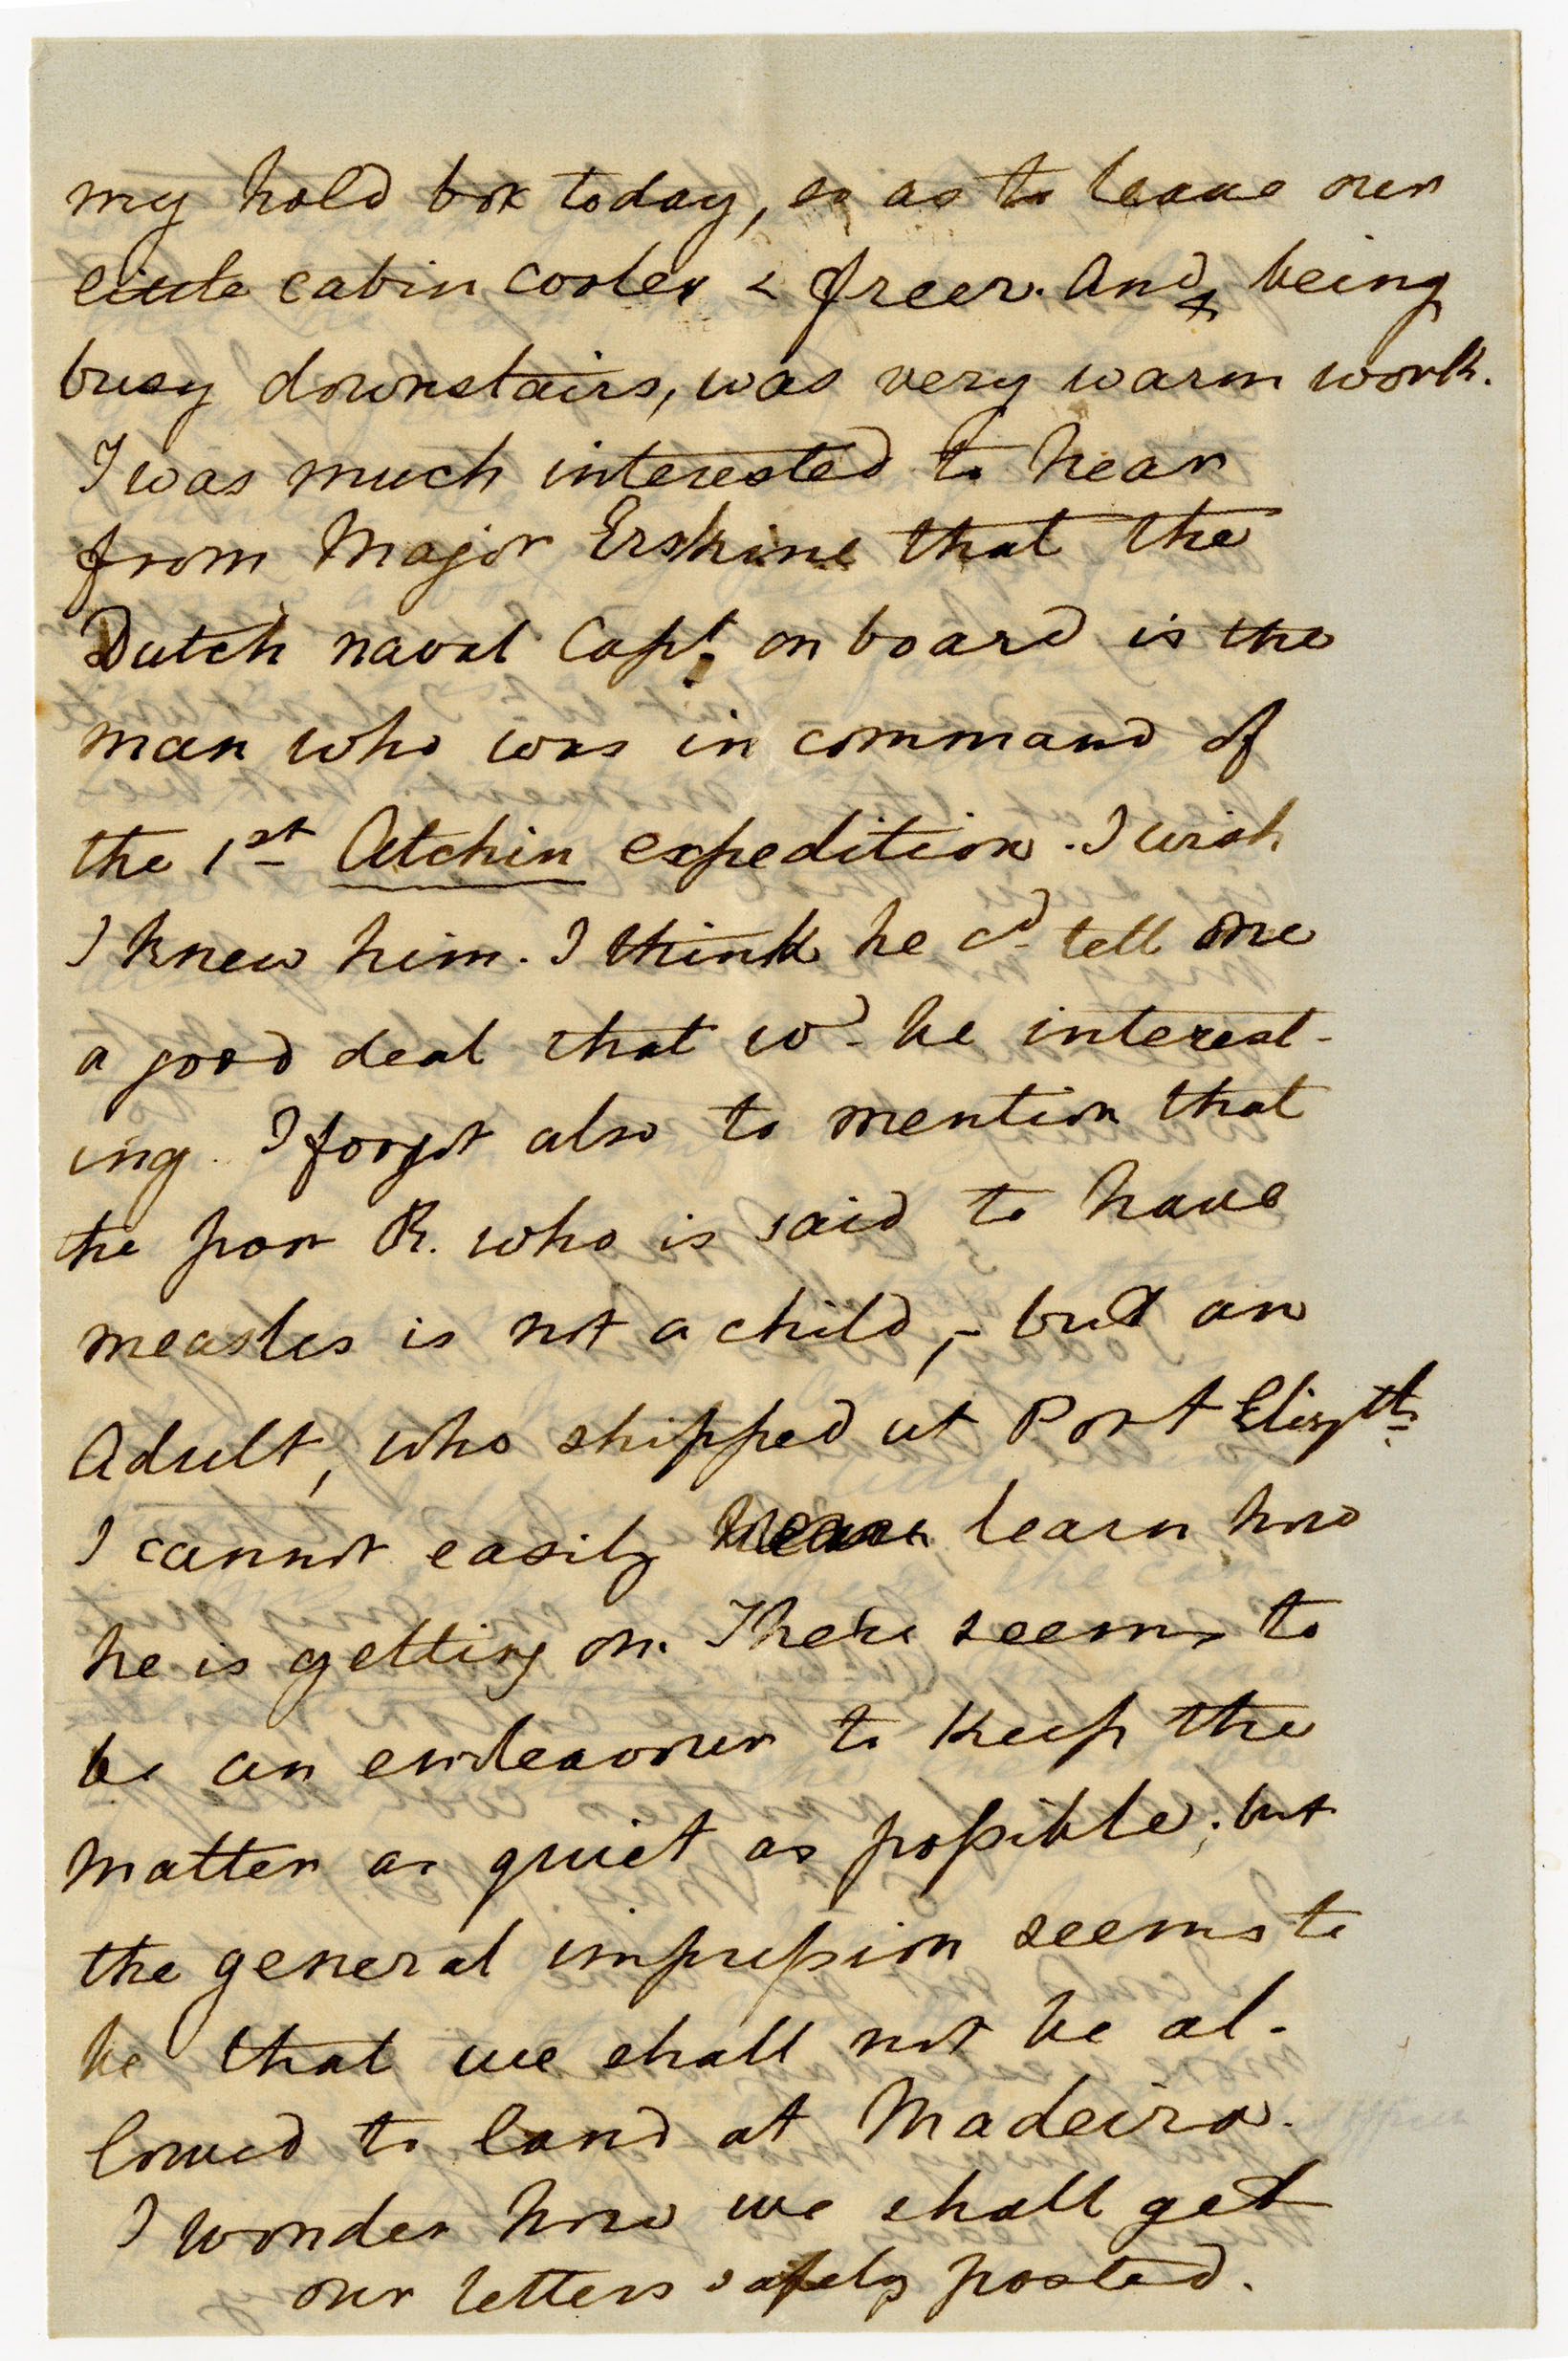 my hold box today, so as to leave our
little cabin cooler & freer. And, being
busy downstairs, was very warm work.
I was much interested to hear
from Major Erskine that the
Dutch naval Capt. on board is the
man who was in command of
the 1st Atchin expedition. I wish
I knew him. I think he cd. tell me
a good deal that wd. be interest-
ing. I forgot also to mention that
the poor R. who is said to have
measles is not a child, - but an
Adult, who shipped at Port Elizth.
I cannot easily learn how
he is getting on. There seems to
be an endeavour to keep the
matter as quiet as possible; but
the general impression seems to
be that we shall not be al-
lowed to land at Madeira.
I wonder how we shall get
our letters safely posted.